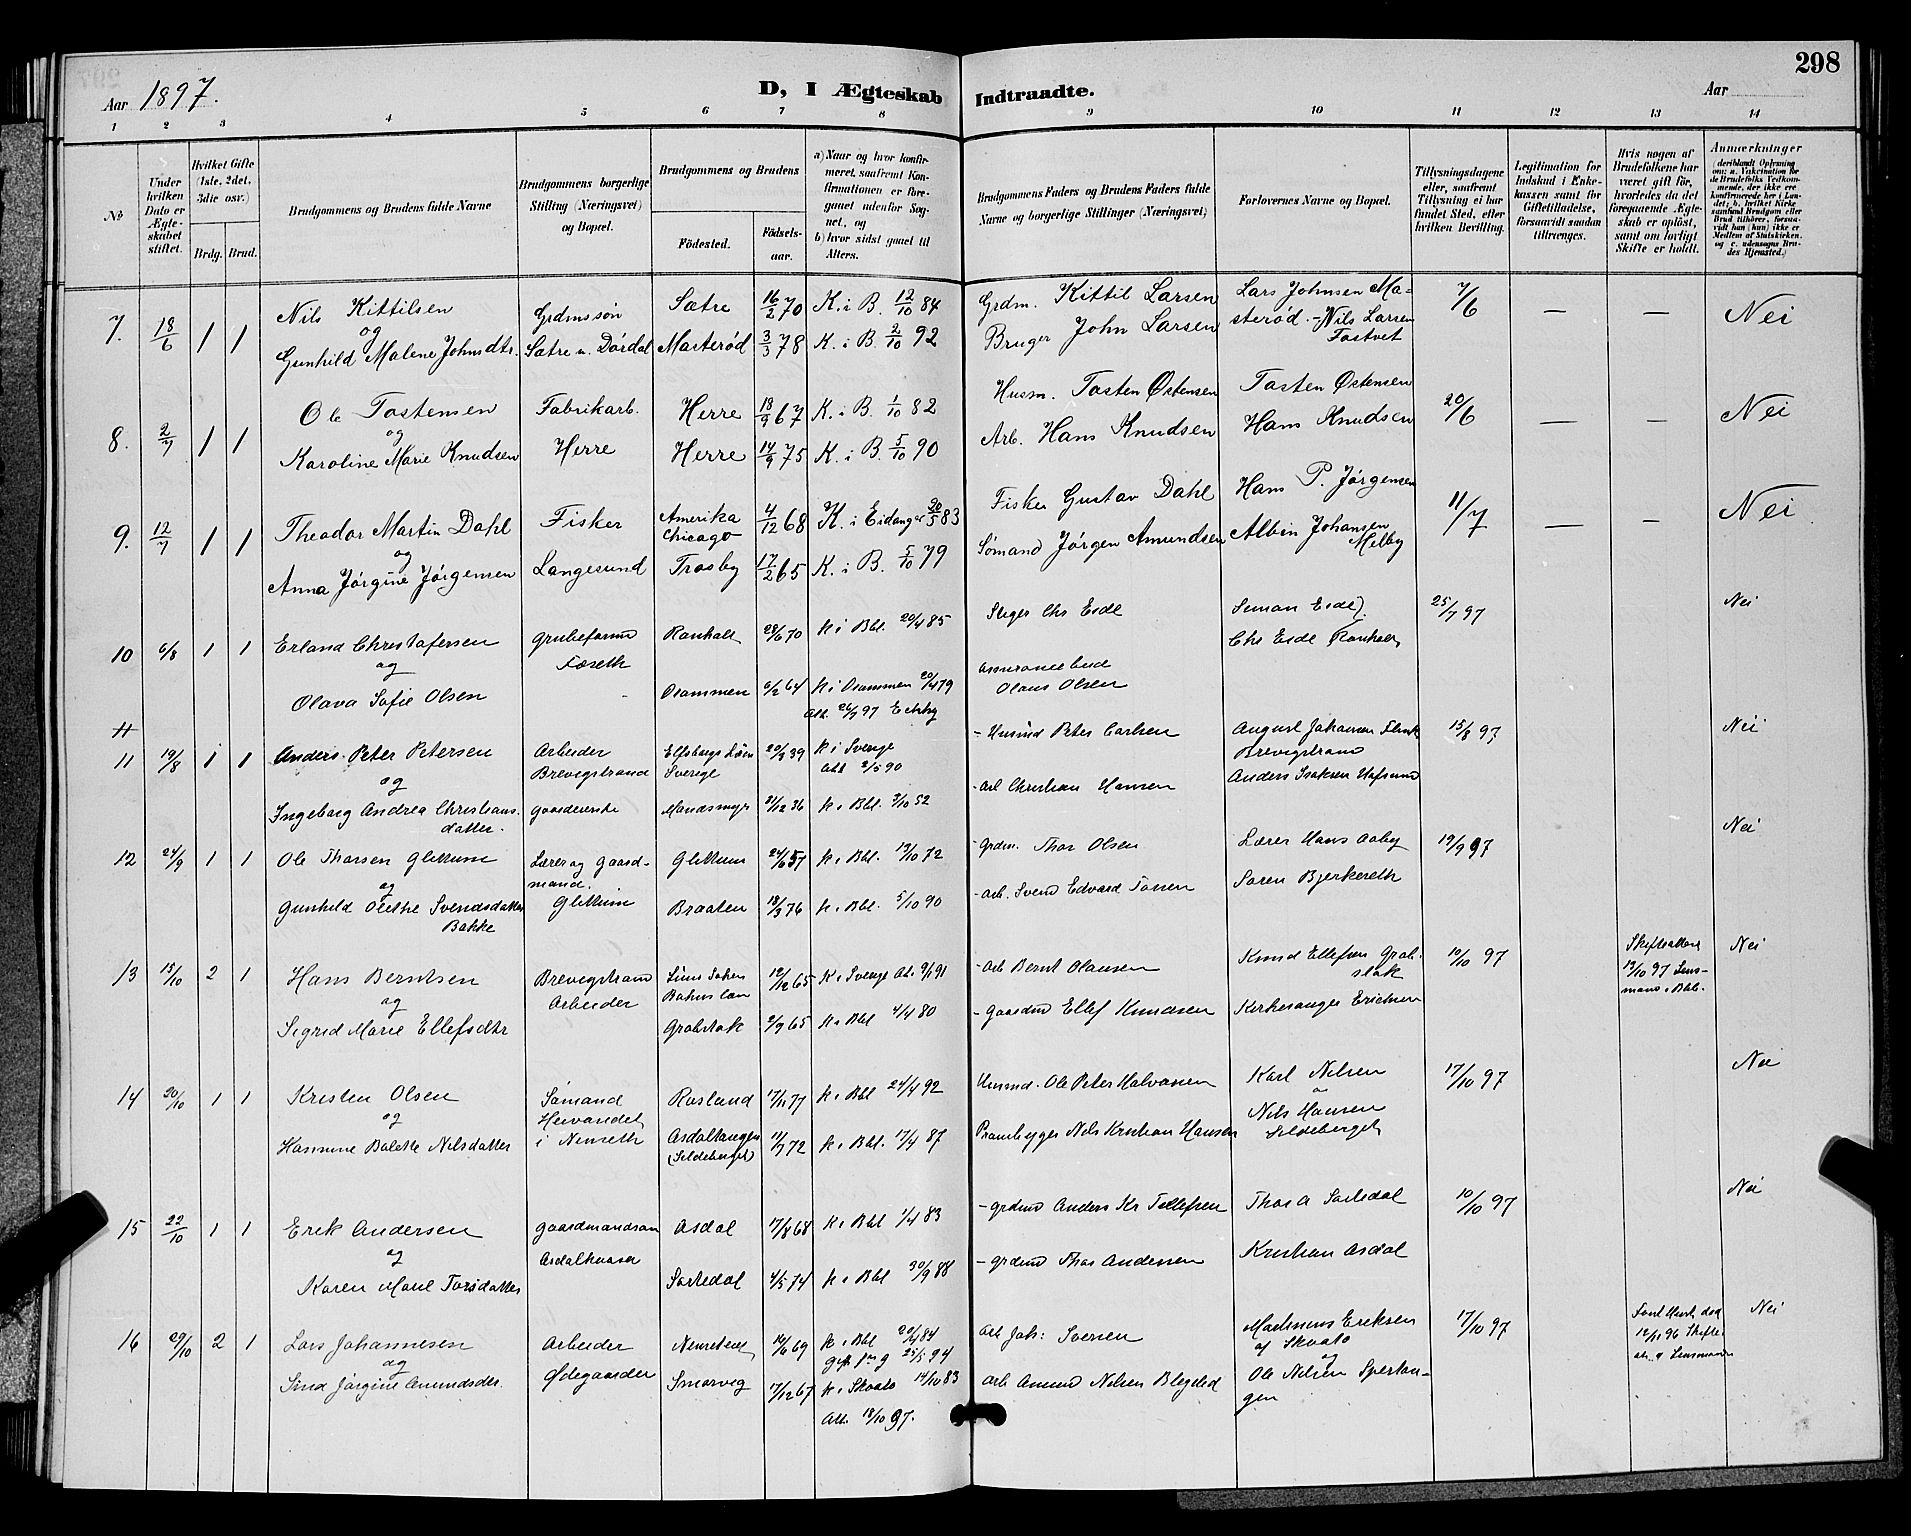 298
Aar 1897.
D, I Ægteskab Indtraadte.
Aar
1 2 3 4 5 6 7 8 9 10 11 12 13 14
№
Under hvilken Dato er Ægteskabet stiftet.
Hvilket Gifte (1ste, 2det, 3die osv.)
Brdg. Brud.
Brudgommens og Brudens fulde Navne
Brudgommens borgerlige Stilling (Næringsvei) og Bopæl.
Brudgommens og Brudens
Födested.
Födsels-aar.
a) Naar og hvor konfirmeret, saafremt Konfirmationen er foregaaet udenfor Sognet, og b) hvor sidst gaaet til Alters.
Brudgommens Faders og Brudens Faders fulde Navne og borgerlige Stillinger (Næringsvei)
Forlovernes Navne og Bopæl.
Tillysningsdagene eller, saafremt Tillysning ei har fundet Sted, efter hvilken Bevilling.
Legitimation for Indskud i Enkekassen samt for Giftetilladelse, forsaavidt saadan tiltrænges.
Hvis nogen af Brudefolkene har været gift för, hvorledes da det foregaaende Ægteskab er oplöst, samt om lovligt Skifte er holdt.
Anmærkninger (deriblandt Oplysning om: a. Vakcination for de Brudefolks Vedkommende, der ikke ere konfirmerede her i Landet; b. hvilket Kirkesamfund Brudgom eller Brud tilhører, forsaavidt han (hun) ikke er Medlem af Statskirken. og c. udensogns Brudes Hjemsted.)
7. 18/6 1 1 Nils Kittilsen Grdmssön Sætre 16/2 70 K. i B. 12/10 84 Grdm. Kittil Larsen Lars Johnsen Ma- 7/6 — — Nei
og sterød. - Nils Larsen
Gunhild Malene Johnsdtr. Sætre u. Dördal Masterød 3/3 78 K. i B. 2/10 92 Bruger John Larsen Tostvet
8. 2/7 1 1 Ole Tostensen Fabrikarb. Herre 18/9 67 K. i B. 1/10 82 Husm. Tosten Østensen Tosten Østensen 20/6 — — Nei
og
Karoline Marie Knudsen Herre Herre 14/9 75 K. i B. 5/10 90 Arb. Hans Knudsen Hans Knudsen
9. 12/7 1 1 Theodor Martin Dahl Fisker Amerika Chicago 4/12 68 K. i Eidanger 20/5 83 Fisker Gustav Dahl Hans P. Jørgensen 11/7 — — Nei.
og
Anna Jørgine Jørgensen Langesund Trosby 17/2 65 K. i B. 5/10 79 Sømand Jørgen Amundsen Albin Johansen Melby
10 6/8 1 1 Erland Christofersen Ranholt 28/6 70 K i Bbl. 20/4 85 Chs Eidl Simon Eidl 25/7 97 Nei
og Chs Eidl
Olava Sofie Olsen 6/2 64 20/4 79 Olaus Olsen
26/7 97
11
11 19/8 1 1 Anders Peter Petersen Arbeider Sverige 20/3 39 K i Sverige Peter Carlsen August Johansen 15/8 97 Nei
og Brevigstrand 2/5 90 Brevigstrand
Ingeborg Andrea Christians- 21/12 36 K i Bbl. 3/10 52 arb Christian Hansen Anders Isaksen
datter.
12 24/9 1 1 Ole Thorsen Glittum Lærer og Gaard- Glittum 24/6 57 K i Bbl. 13/10 72 - Grdm. Thor Olsen Lærer Hans Aaby 19/9 97 Nei
og mand.
Gunhild Olethe Svendsdatter Glittum Braaten 18/3 76 K i Bbl. 5/10 90 - arb. Svend Edvard Tossen Søren Bjerkeseth
Bakke
13 15/10 2 1 Hans Berntsen Brevigstrand 12/12 65 K i Sverige - arb Bernt Olausen Knud Ellefsen Grob- 10/10 97 Skifteattest Nei
og Arbeider stok 12/10 97 Lens-
Sigrid Marie Ellefsdtr Grobstok 2/9 65 K i Bbl 4/4 80 - Gaardmd Ellef Knudsen Kirkesanger Erichsen mand i Bbl.
14 20/10 1 1 Kristen Olsen Sømand Rosland 17/11 71 K i Bbl 24/4 92 Husmd. Ole Peter Halvorsen Karl Nilsen 17/10 97 Nei
og
Hansine Balethe Nilsdatter Asdaltangen 72 K i Bbl. 17/4 87 Prambygger Nils Kristian Hansen Nils Hansen
(Sildeberget) Sildeberget
15 22/10 1 1 Erik Andersen Gaardmandsøn Asdal 17/8 68 K i Bbl 1/4 83 - Grdmd Anders Kr Tellefsen Thor A Sørledal 10/10 97 Nei
og
Karen Marie Torsdatter Sørledal 4/5 74 K i Bbl 30/9 88 - Grdmd Thor Andersen Kristian Asdal
16 29/10 2 1 Lars Johannesen Arbeider 14/6 69 K i Bbl 20/4 84 Arb Joh: Sversen Martinus Eriksen 17/10 97 Nei
og gift 1ste g 25/5 94 af Skaato 12/11 96 Skifte-
Sina Jørgine Amundsdtr. Ødegaarden Smørvig 7/12 67 K i Skaato 14/10 83 Arb Amund Nilsen og
Att. 18/10 97. Ole Nilsen